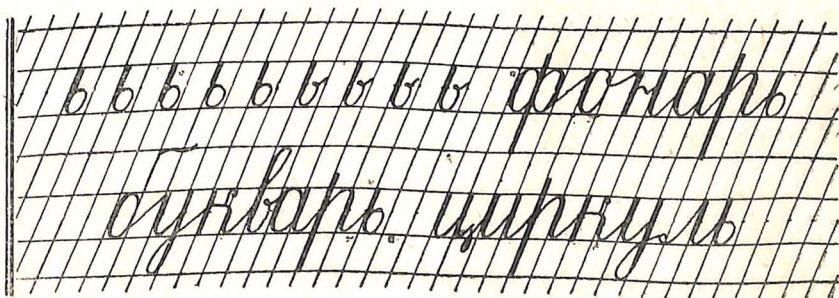 ь ь ь ь ь ь ь ь ь фонарь
букварь циркуль